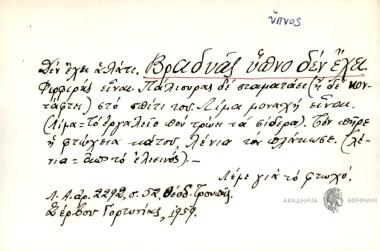 ὕπνος
Δέν ἔχει ἀλάτι. Βραδυάς ὕπνο δέν ἔχει
Φιρφιρής εἶναι. Πάλιουρας δέ σταματάει (ἤ δέ κον-
τάφτει) στό σπίτι του. Λίμα μοναχή εἶναι.
(Λίμα = Τό ἐργαλεῖο πού τρώγει τά σίδερα). Τόν πῆρε
ἡ φτώχεια κάτου, λένια τόν πλάκωσε. (λέ-
νια = ἀπό τό ἐλεεινός).—
Λέμε γιά τό φτωχό.
Λ. Α. ἀρ. 2292, σ. 52, Θεόδ. Τρουπῆς,
Σέρβου Γορτυνίας, 1959.
ΑΚΑΔΗΜΙΑ ΑΘΗΝΩΝ